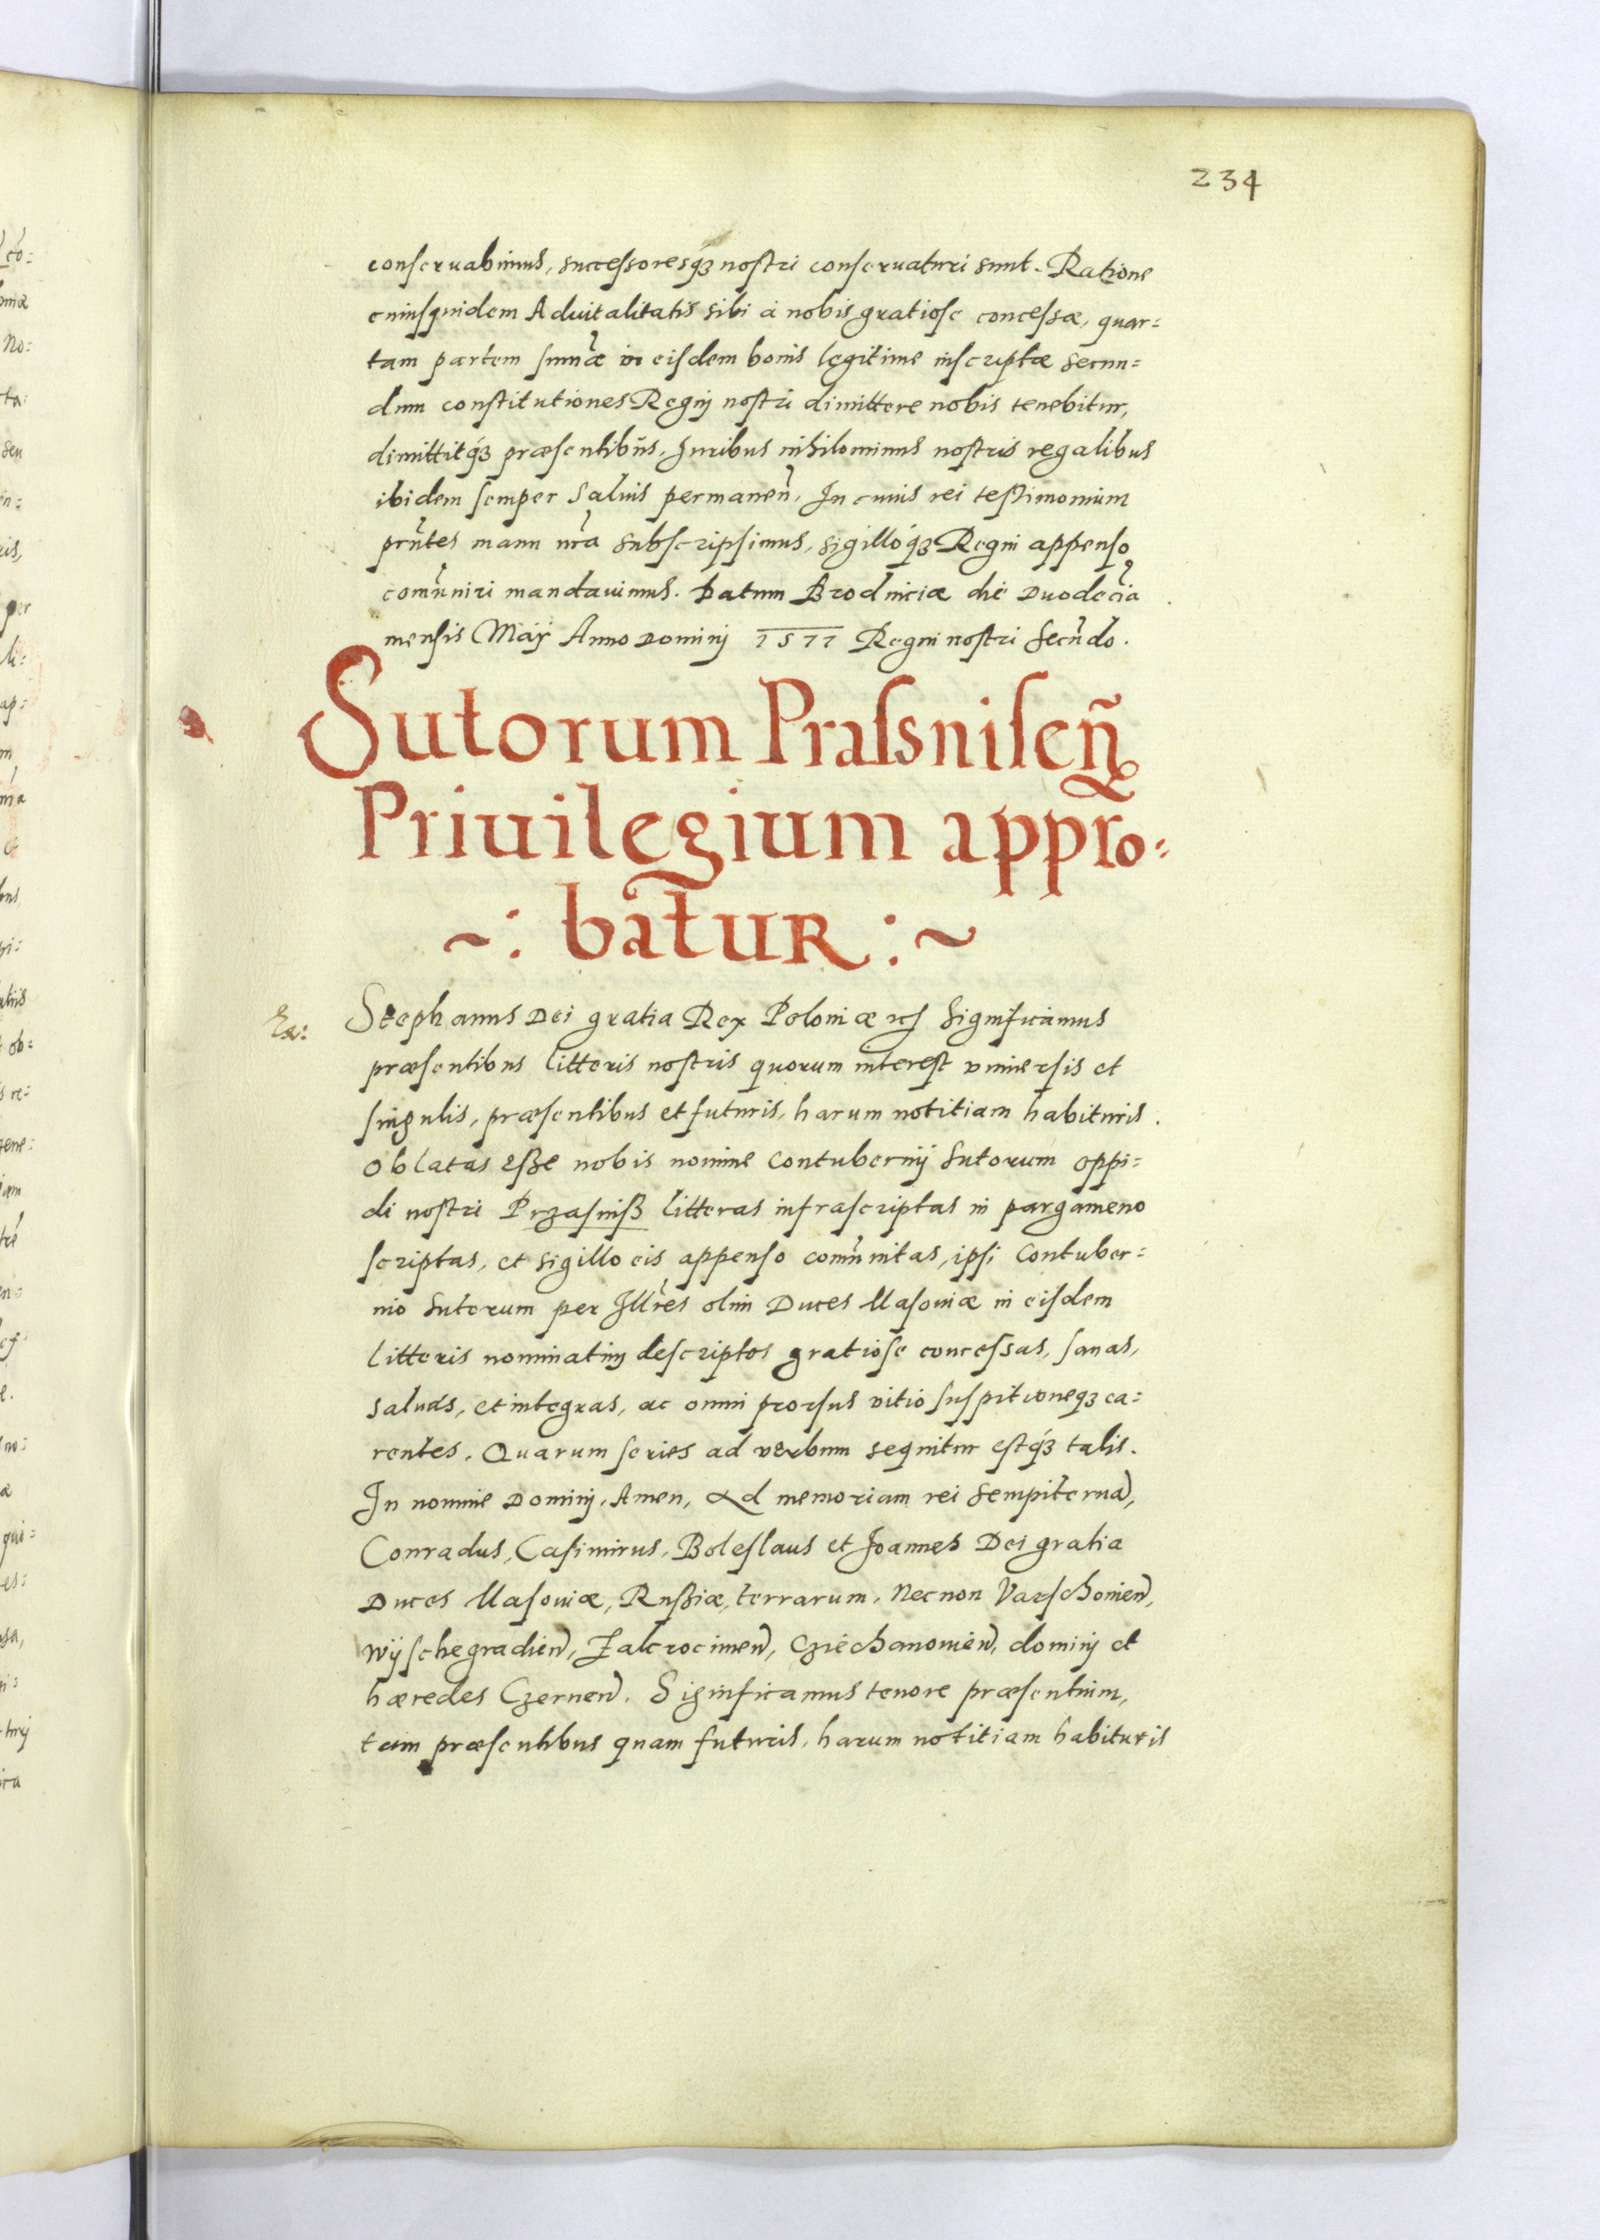 234
conseruabimus, successoresq́ꝫ nostri conseruaturi sunt. Ratione
cuiusquidem Aduitalitatis sibi à nobis gratiose concessæ, quar=
tam partem sum̃æ in eisdem bonis legitime inscriptæ secun=
dum constitutiones Regnj nostri dimittere nobis tenebitur,
dimittitq́ꝫ præsentibus. Juribus nihilominus nostris regalibus
ibidem semper saluis permanen̄. In cuius rei testimonium
pr̃ntes manu nr̃a subscripsimus, sigilloq́ꝫ Regni appenso
com̃uniri mandauimus. Datum Brodniciæ die Duodecĩa
mensis Maÿ Anno Dominj 1577 Regni nostri Secũdo.
Sutorum Prasnisen̄
Priuilegium appro=
~: batur :~
Stephanus Dei gratia Rex Poloniæ ꝛcꝭ Significamus
præsentibus litteris nostris quorum interest vniuersis et
singulis, præsentibus et futuris, harum notitiam habituris.
Oblatas esse nobis nomine Contubernij Sutorum oppi=
di nostri Przasniß litteras infrascriptas in pargameno
scriptas, et sigillo eis appenso com̃unitas, ipsi Contuber=
nio Sutorum per Illr̃es olim Duces Masouiæ in eisdem
litteris nominatim descriptos gratiose concessas, sanas,
saluas, et integras, ac omni prorsus vitio suspitioneqꝫ ca=
rentes. Quarum series ad verbum sequitur estq́ꝫ talis.
In nomine Dominj, Amen, Ad memoriam rei sempiternã,
Conradus, Casimirus, Boleslaus et Joannes Dei gratia
Duces Masouiæ, Rußiæ, terrarum, Necnon Varschouien̄,
Wÿschegradien̄, Zakrocimen̄, Cziechanouien̄, dominj et
hæredes Czernen̄. Significamus tenore præsentium,
tam præsentibus quam futuris, harum notitiam habituris